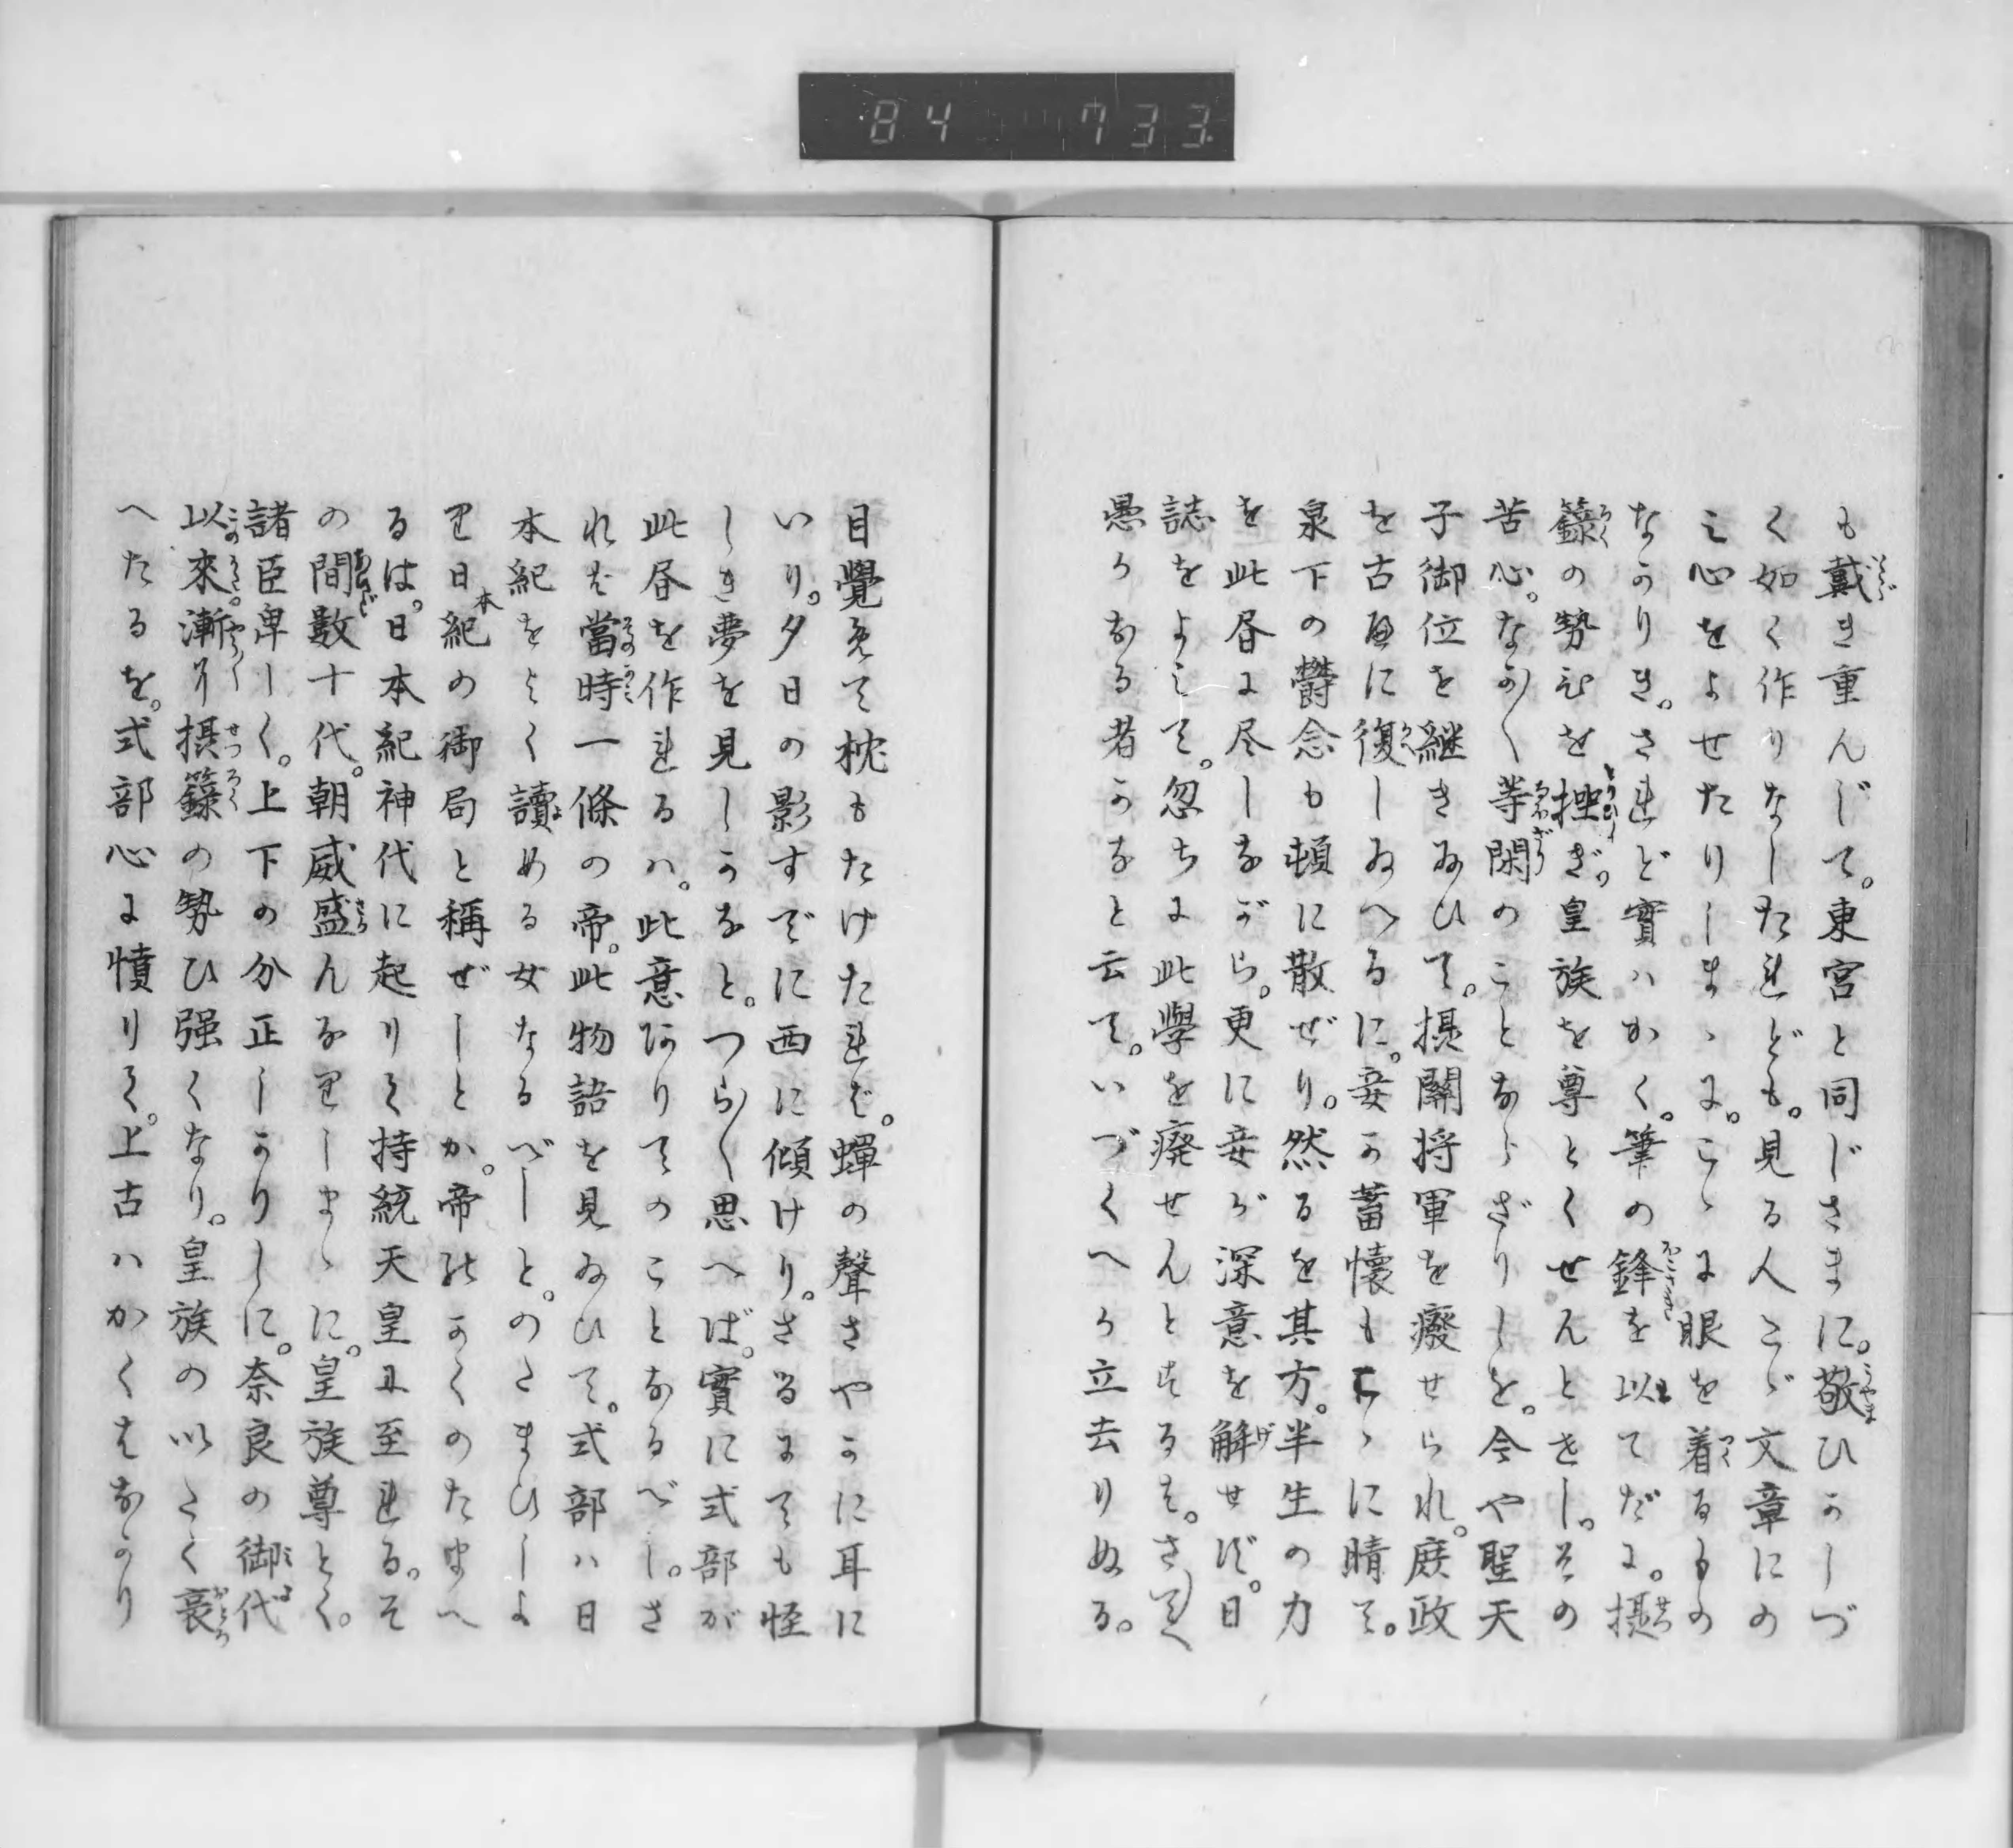 84 733
も戴き重んじて。東宮と同じさまに。敬ひかしづ
く如く作りなしたれども。見る人たゞ文章にの
み心をよせたりしまゝに。こゝに眼を着るもの
なかりき。されど實ハかく。筆の鋒を以てだに。摂
籙の勢ひを挫ぎ。皇族を尊とくせんとせし。その
苦心。なか〳〵等閑のことならざりしを。今や聖天
子御位を継きゐひて。摂關将軍を癈せられ。庶政
を古へに復しゐへるに。妾か蓄懐もこゝに晴て。
泉下の欝念も頓に散ぜり。然るを其方。半生の力
を此昼に尽しながら。更に妾が深意を解せず。日
誌をよみて。忽ちに此學を癈せんとするは。さて〳〵
愚かなる者かなと云て。いづくへか立去りぬる。
目覺めて枕もたげたれば。蟬の聲さやかに耳に
いり。夕日の影すでに西に傾けり。さるにても怪
しき夢を見しかなと。つら〳〵思へば。實に式部が
此昼を作れるハ。此意ありてのことなるべし。さ
れば當時一條の帝。此物語を見ゐひて。式部ハ日
本紀をよく讀める女なるべしと。のたまひしよ
り日本紀の御局と稱ぜしとか。帝のかくのたまへ
るは。日本紀神代に起りて持統天皇に至れる。そ
の間數十代。朝威盛んなりしまゝに。皇族尊とく。
諸臣卑しく。上下の分正しかりしに。奈良の御代
以來漸り摂籙の勢ひ强くなり。皇族のいたく衰
へたるを。式部心に憤りて。上古ハかくはなかり